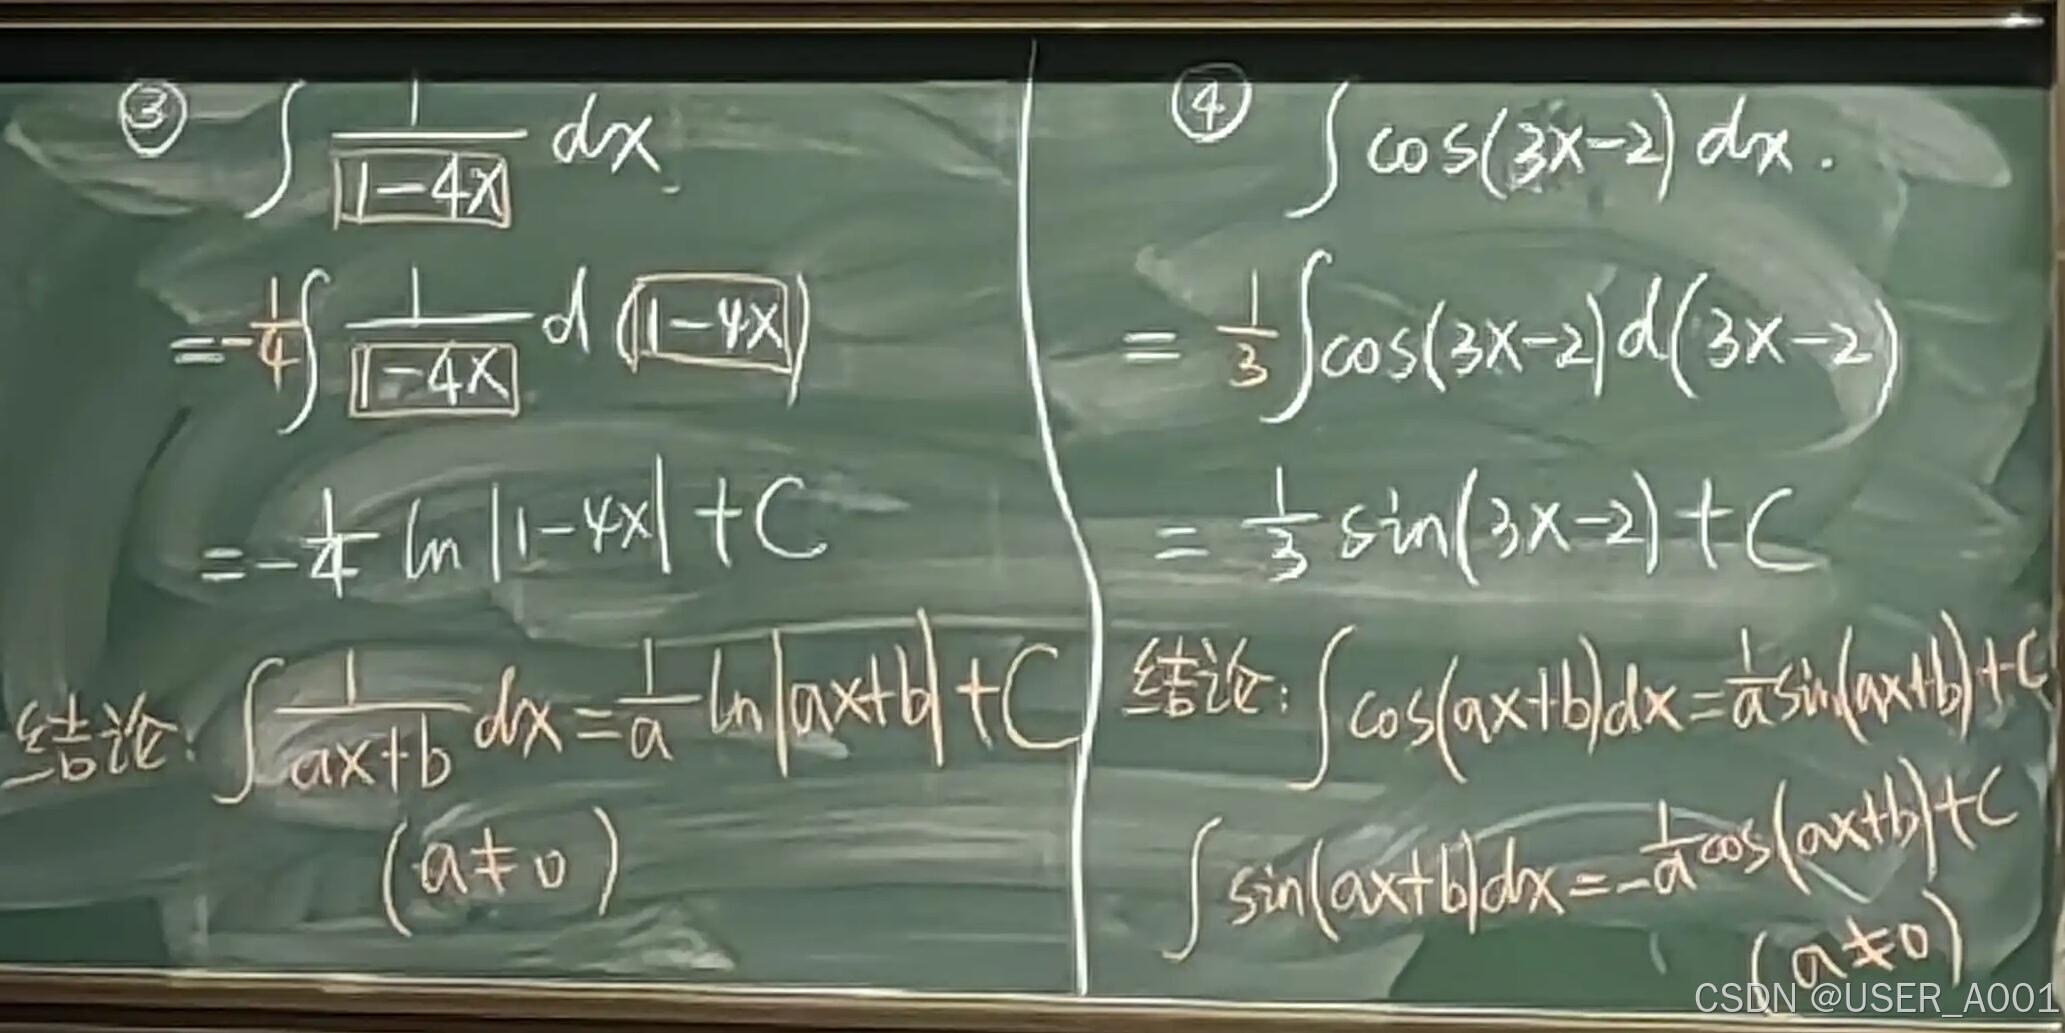 ③ ∫ 1/(1-4x) dx
= -1/4 ∫ 1/(1-4x) d(1-4x)
= -1/4 ln|1-4x| + C
结论: ∫ 1/(ax+b) dx = 1/a ln|ax+b| + C
(a≠0)
④ ∫ cos(3x-2) dx.
= 1/3 ∫ cos(3x-2) d(3x-2)
= 1/3 sin(3x-2) + C
结论: ∫ cos(ax+b)dx = 1/a sin(ax+b) + C
∫ sin(ax+b)dx = -1/a cos(ax+b) + C
(a≠0)
CSDN @USER_A001